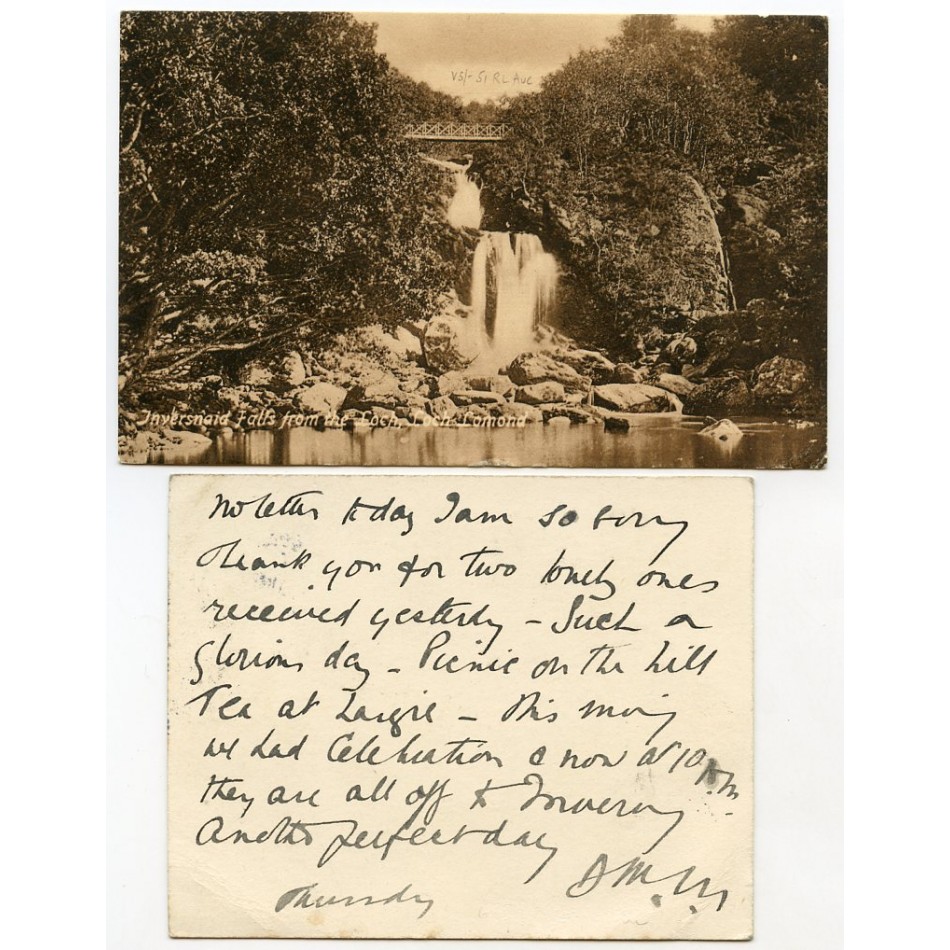 V5/- S1 RL AUC
Inversnaid Falls from the Loch, Loch Lomond
No letter today I am so sorry
Thank you for two lovely ones
received yesterday - Such a
glorious day - Picnic on the hill
Tea at - This morng
we had Celebration & now at 10 A.M.
they are all off to
Another perfect day
Thursday